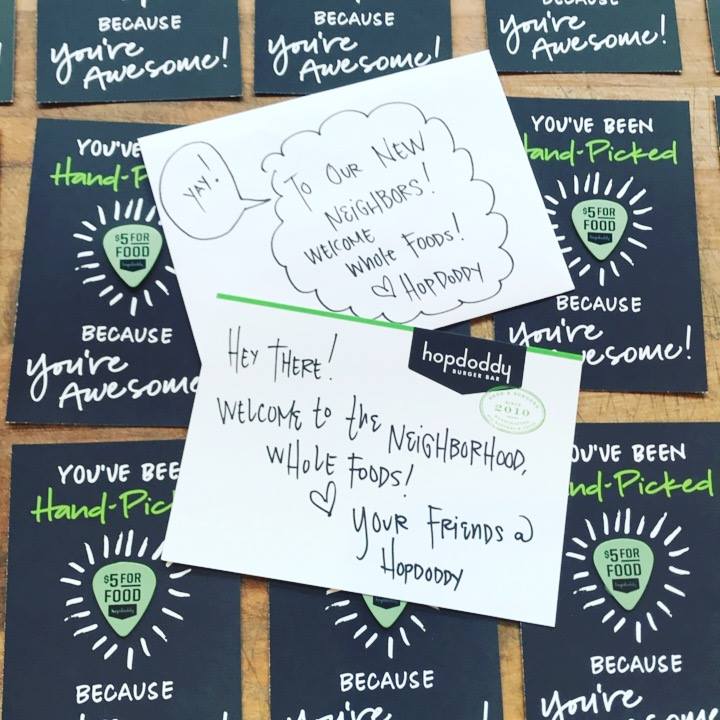 BECAUSE
You're
Awesome!
BECAUSE
You're
Awesome!
BECAUSE
You're
Awesome!
YAY!
To OUR NEW
NEIGHBORS!
WELCOME
Whole Foods!
♡ HOPDODDY
HEY THERE!
WELCOME to the NEIGHBORHOOD,
WHOLE FOODS!
♡ YOUR FRIENDS @
HOPDODDY
hopdoddy
BURGER BAR
SINCE
2010
YOU'VE
Hand-P
$5 FOR
FOOD
hopdoddy
BECAUSE
You're
Awesome
YOU'VE BEEN
Hand-Picked
$5 FOR
FOOD
hopdoddy
BECAUSE
You're
Awesome!
YOU'VE BEE
Hand-Pic
$5 FOR
FOOD
hopdoddy
BECAUSE
You're
FOOD
hopdoddy
BECAUSE
You're
YOU'VE BEEN
Hand-Picked
$5 FOR
FOOD
hopdoddy
BECAUSE
You're